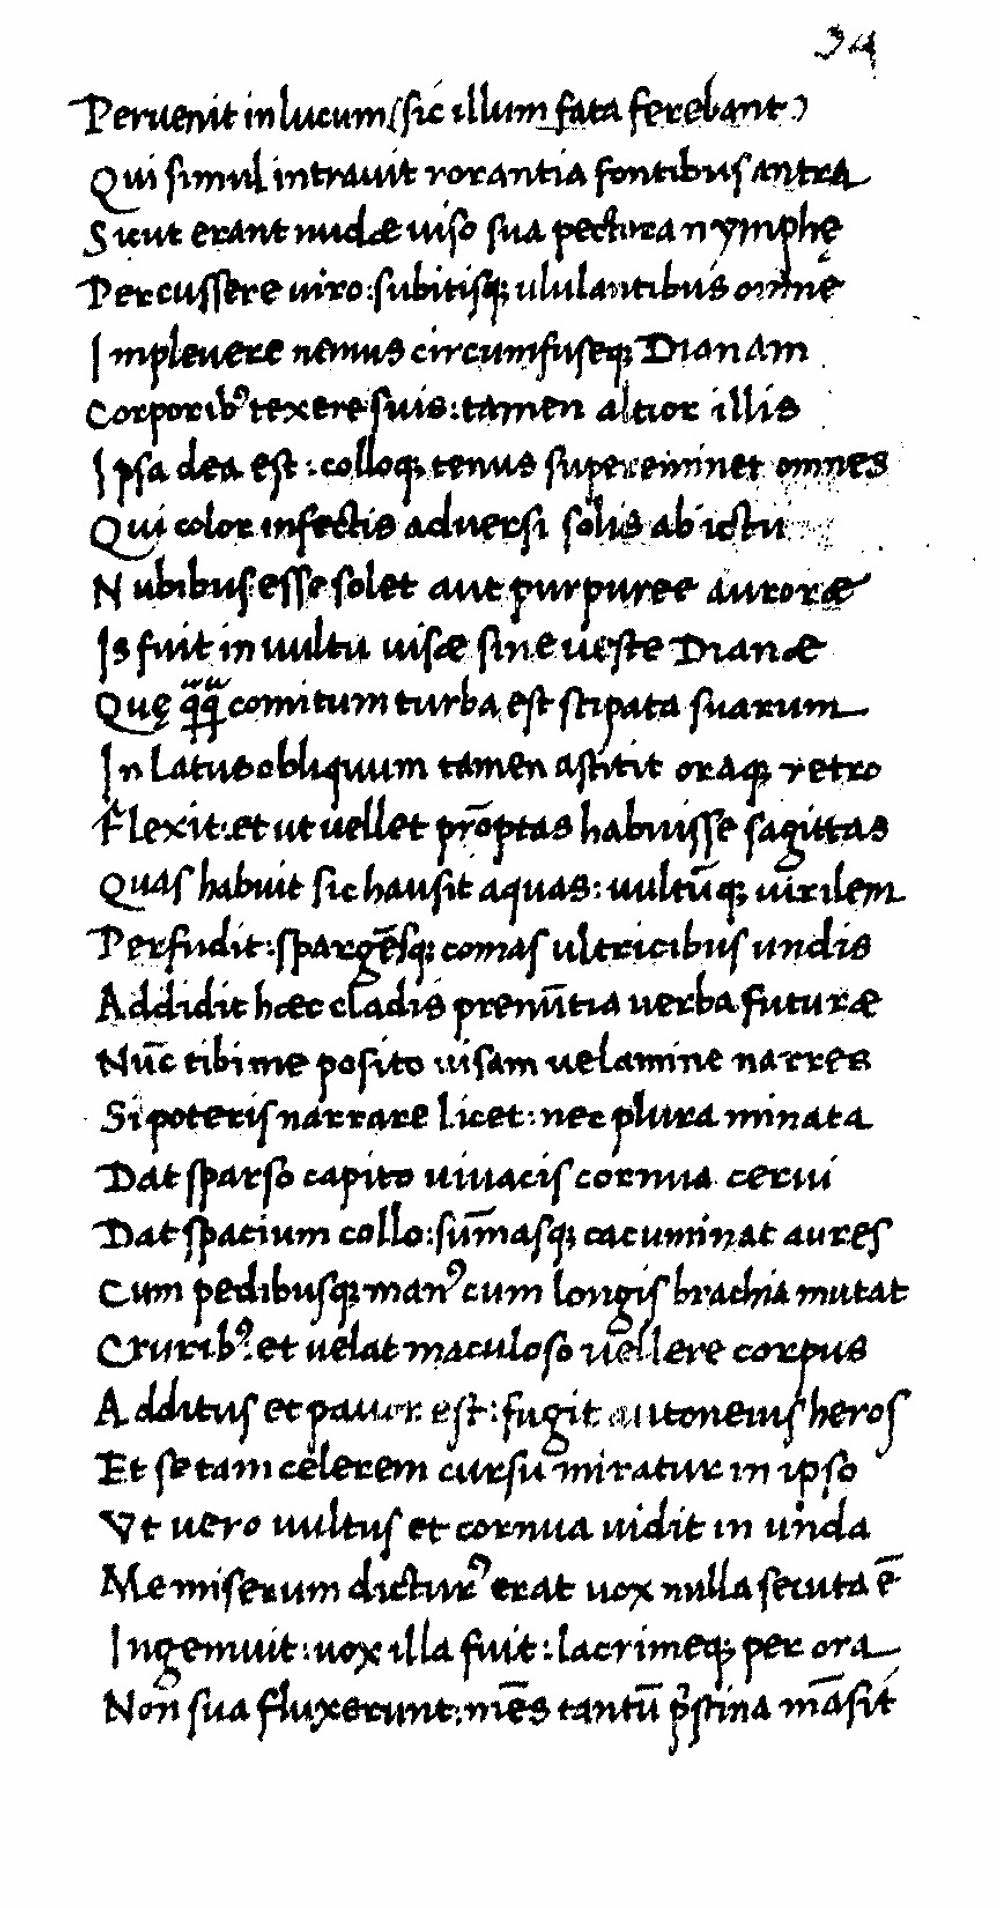 34
Peruenit in lucum (sic illum fata ferebant)
Qui simul intrauit rorantia fontibus antra
Sicut erant nudæ uiso sua pectora nymphę
Percussere uiro: subitisq; ululantibus omne
Impleuere nemus circumfuseq; Dianam
Corporibꝰ texere suis: tamen altior illis
Ipsa dea est: colloq; tenus supereminet omnes
Qui color infectis aduersi solis ab ictu
Nubibus esse solet aut purpuree auroræ
Is fuit in uultu uisæ sine ueste Dianæ
Quę qᷓqᷓ comitum turba est stipata suarum
In latus obliquum tamen astitit oraq; retro
Flexit: et ut uellet prōptas habuisse sagittas
Quas habuit sic hausit aquas: uultūq; uirilem
Perfudit: spargēsq; comas ultricibus undis
Addidit hæc cladis prenūtia uerba futuræ
Nūc tibi me posito uisam uelamine narres
Si poteris narrare licet: nec plura minata
Dat sparso capito uiuacis cornua cerui
Dat spatium collo: sūmasq; cacuminat aures
Cum pedibusq; manꝰ cum longis brachia mutat
Cruribꝰ: et uelat maculoso uellere corpus
Additus et pauor est: fugit autoneius heros
Et se tam celerem cursu miratur in ipso
Vt uero uultus et cornua uidit in unda
Me miserum dicturꝰ erat uox nulla secuta ē
Ingemuit: uox illa fuit: lacrimeq; per ora
Non sua fluxerunt: mēs tantū p̄stina māsit